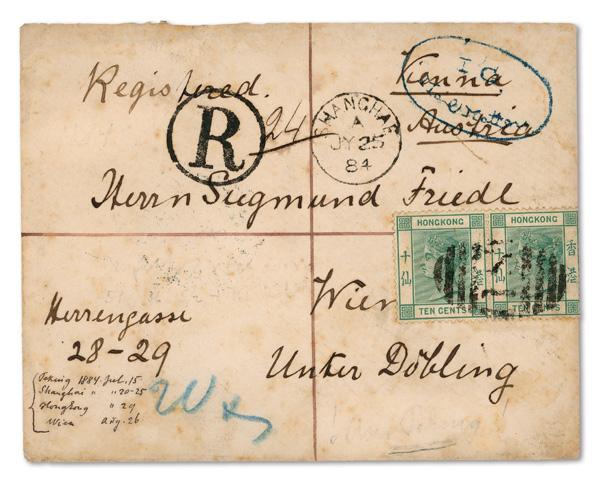 Registered.
Vienna
Austria
I G
R
24
SHANGHAE
A
JY 25
84
Herrn Siegmund Friedl
HONGKONG
HONGKONG
十仙
港
十仙
香港
TEN CENTS
TEN CENTS
Wien
Unter Döbling
Herrengasse
28-29
Peking 1884 Jul. 15
Shanghai " " 20-25
Hongkong " 29
Wien Aug. 26